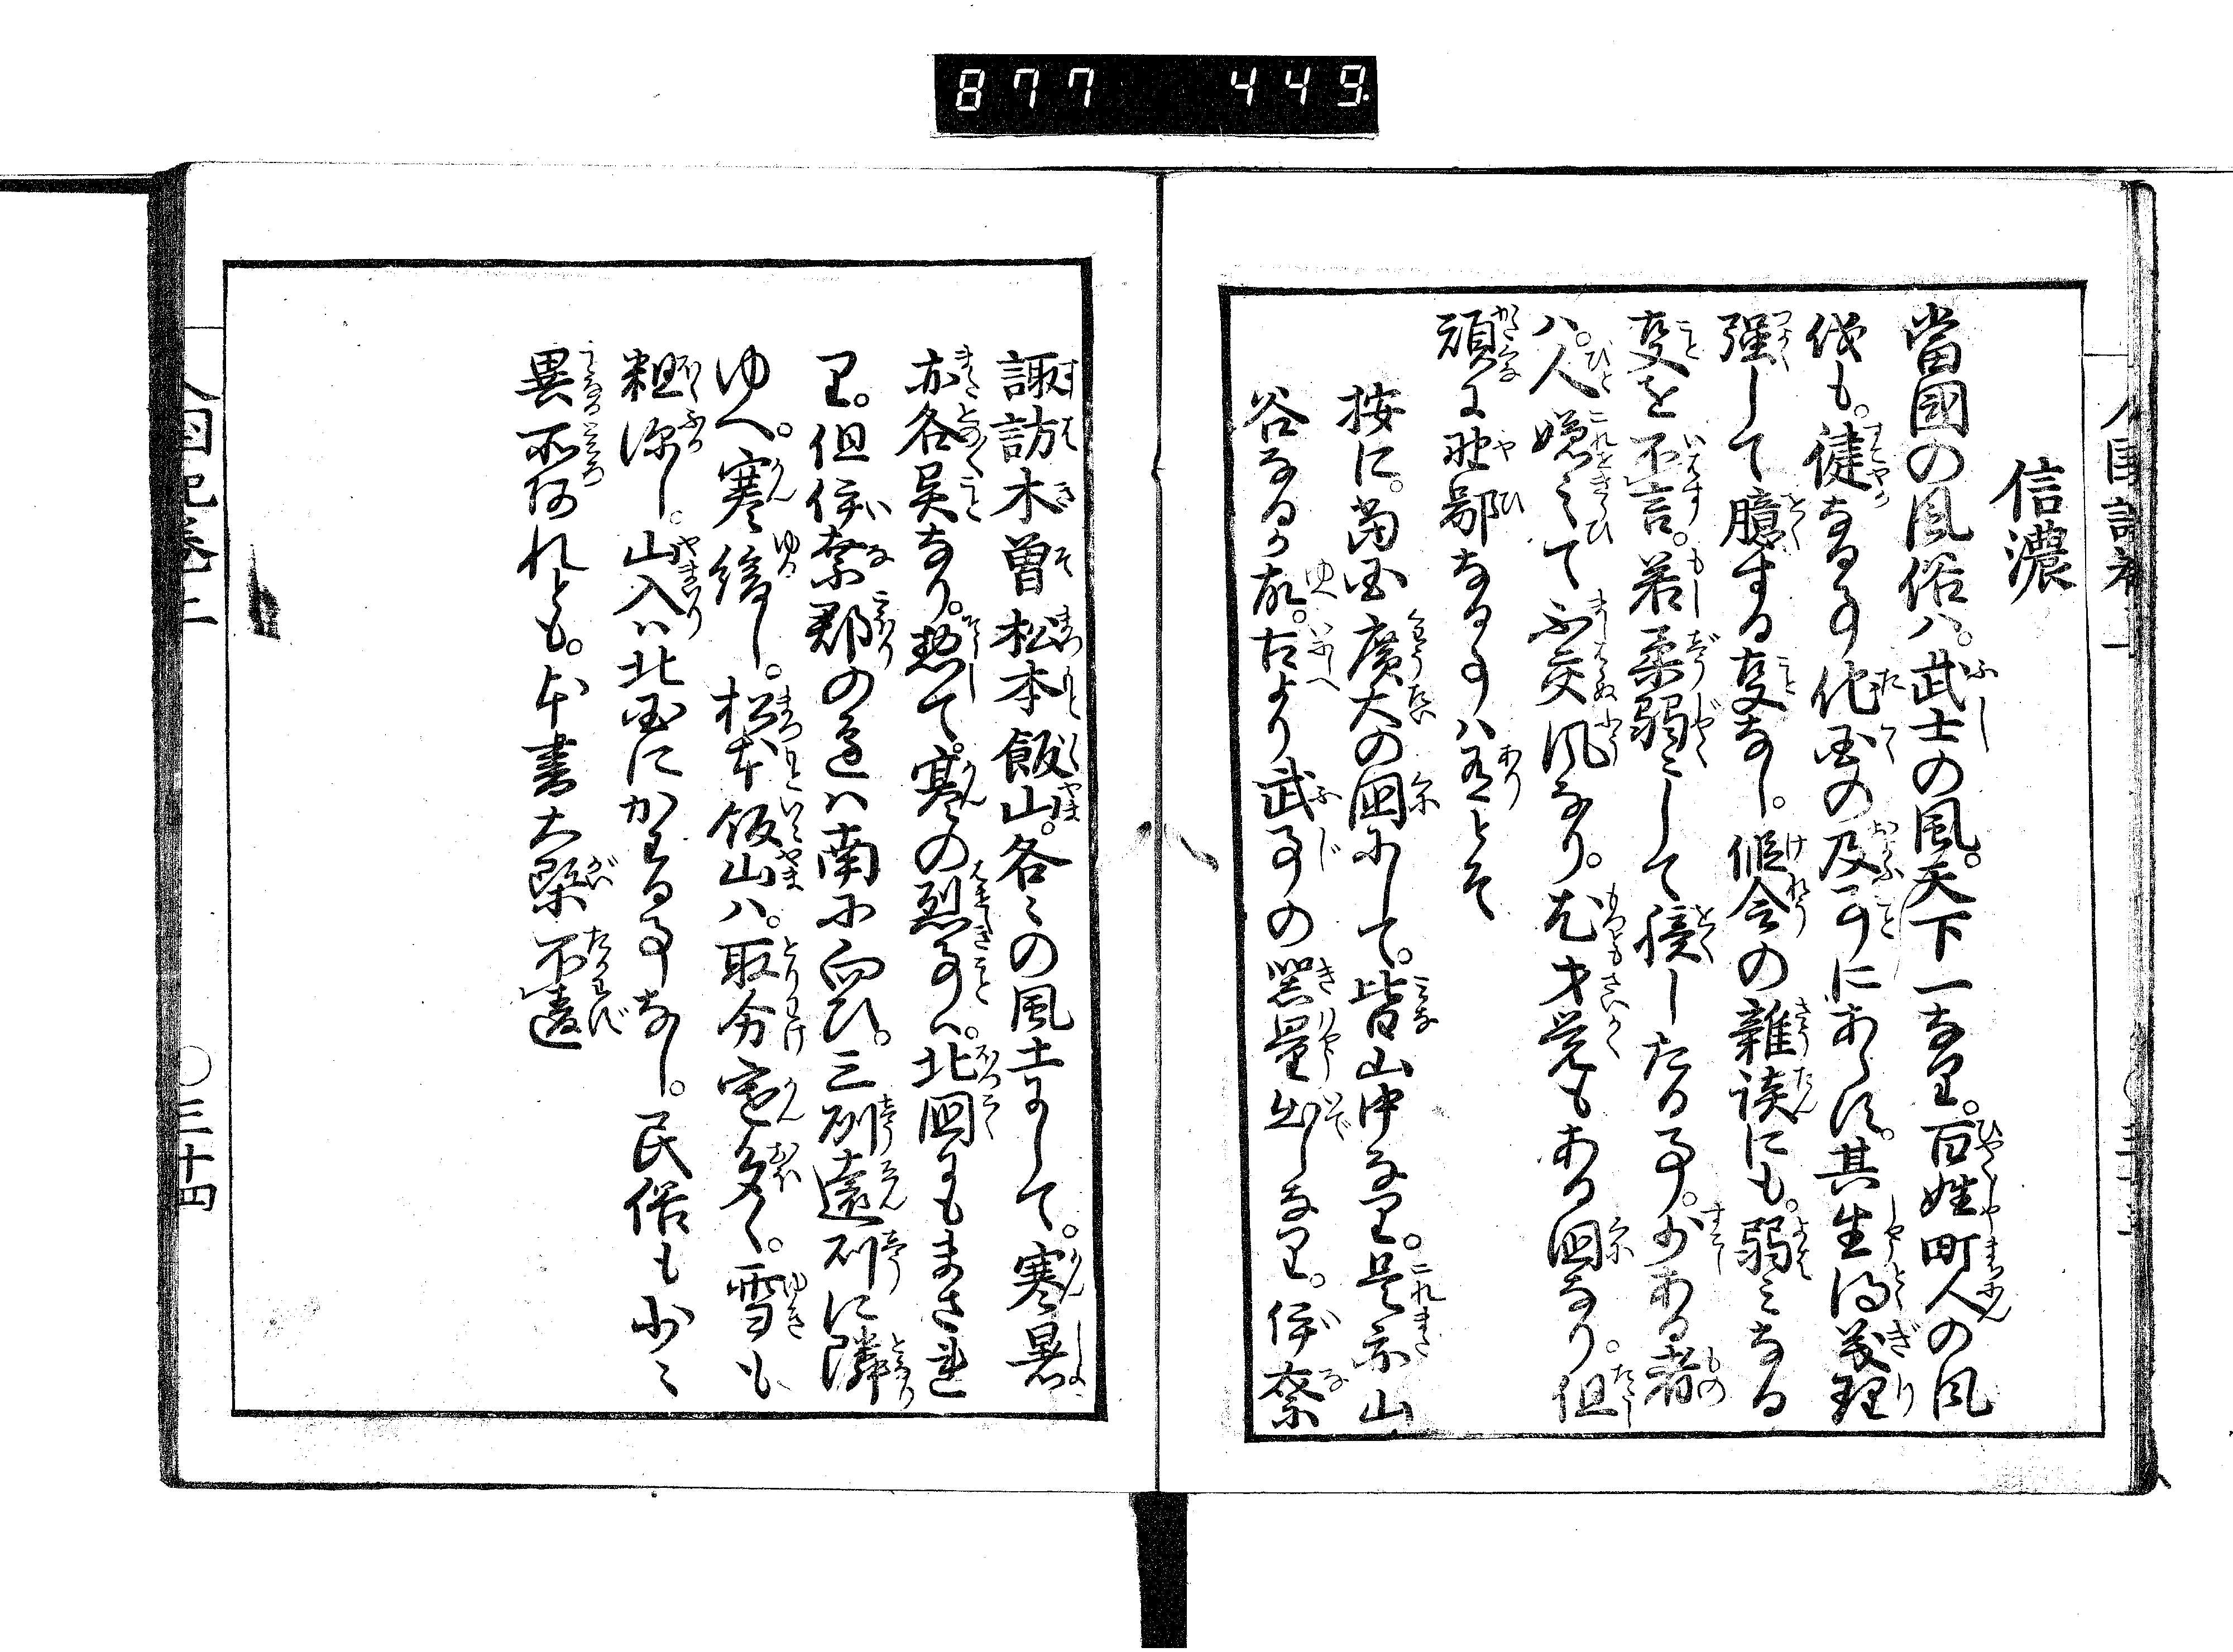 877 449
信濃
當國の風俗ハ。武士の風。天下一なり。百姓町人の風
俗も。健なる事他国の及ふことにあらず。其生得義理
強して臆する事なし。假令の雜談にも。弱ミなる
事を不言。若柔弱にして臆したる事。少ある者
ハ。人嫌ミて不交風なり。尤才覚もある国なり。但
頑に野鄙なる事ハ有とそ
按に。當国廣大の国にして。皆山中なり。是亦山
谷なるか故。古より武事の器量出しなり。伊奈
諏訪木曽松本飯山。各々の風土にして。寒暑
亦各異なり。惣て。寒の烈事ハ。北国にもまされ
り。但伊奈郡の邊ハ南に向ひ。三州遠州に隣
ゆへ。寒緩し。松本飯山ハ。取分寒多く。雪も
粗深し。山入ハ北国にかわる事なし。民俗も少々
異所有れとも。本書大槩不違
人国記巻之二
〇三十四